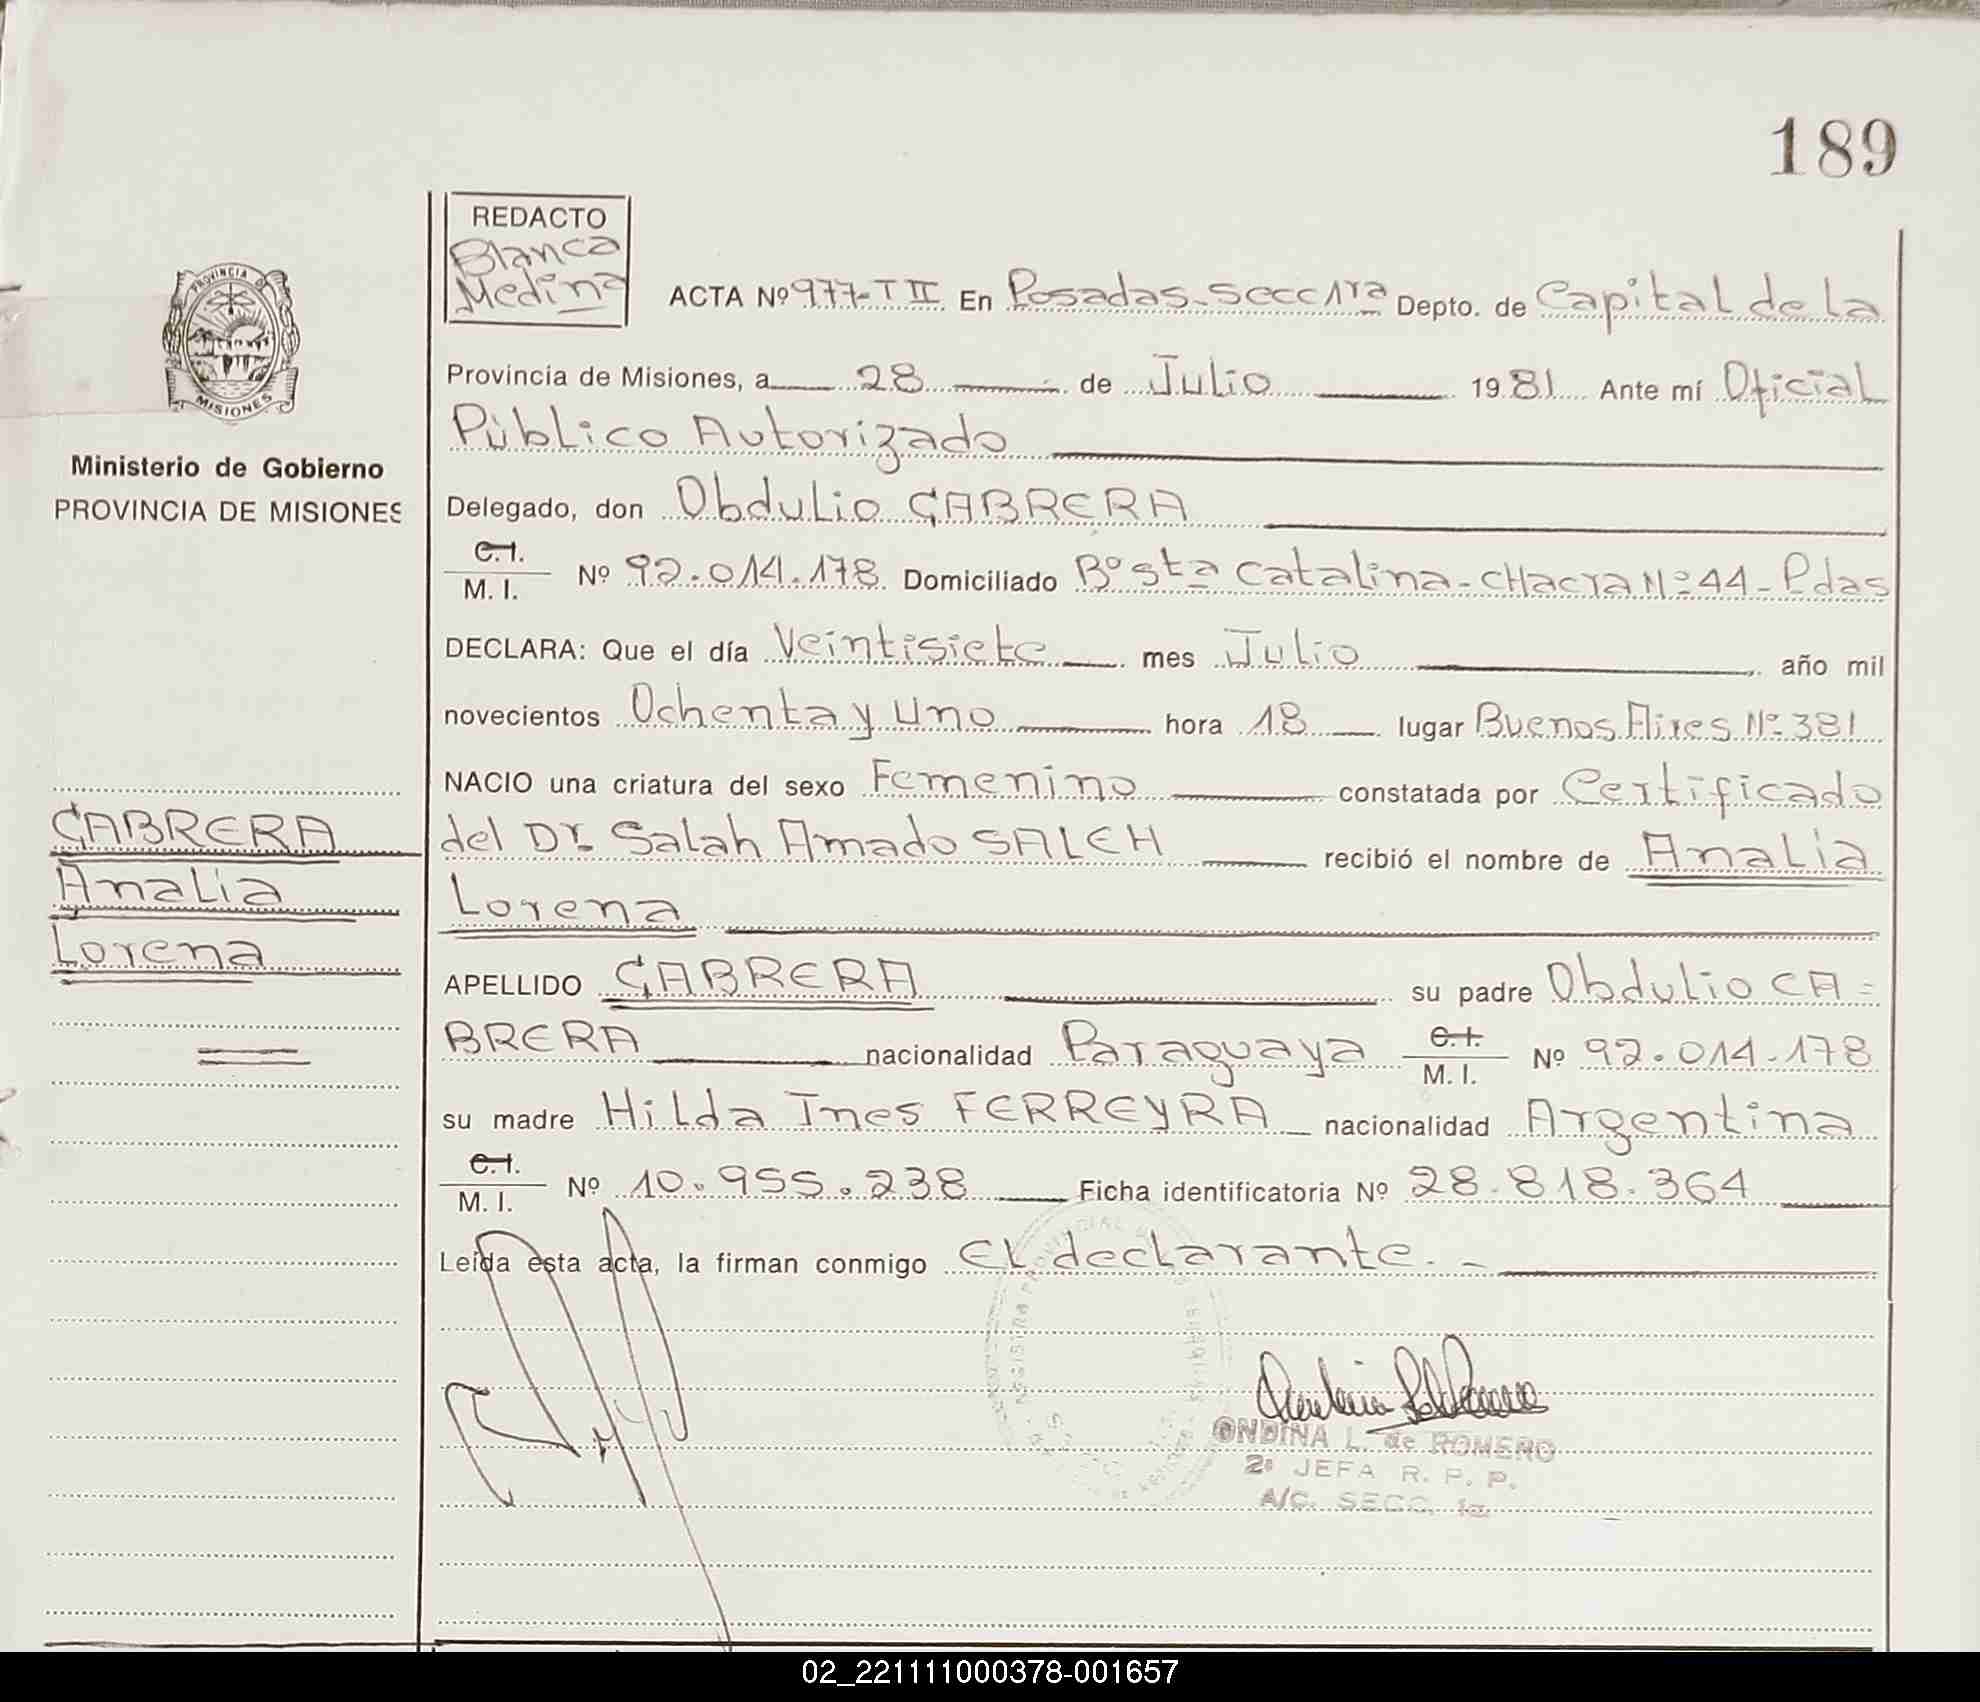 189
REDACTO
Blanca
Medina
PROVINCIA DE
MISIONES
Ministerio de Gobierno
PROVINCIA DE MISIONES
CABRERA
Analia
Lorena
ACTA Nº 977-T II En Posadas-Secc 1ra Depto. de Capital de la
Provincia de Misiones, a 28 de Julio 1981 Ante mí Oficial
Público Autorizado
Delegado, don Obdulio CABRERA
C.I.
M. I. Nº 92.014.178 Domiciliado Bº Sta Catalina-CHacra Nº 44-Pdas
DECLARA: Que el día Veintisiete mes Julio año mil
novecientos Ochenta y Uno hora 18 lugar Buenos Aires Nº 381
NACIO una criatura del sexo Femenino constatada por Certificado
del Dr. Salah Amado SALEH recibió el nombre de Analia
Lorena
APELLIDO CABRERA su padre Obdulio CA=
BRERA nacionalidad Paraguaya C.I.
M. I. Nº 92.014.178
su madre Hilda Ines FERREYRA nacionalidad Argentina
C.I.
M. I. Nº 10.955.238 Ficha identificatoria Nº 28.818.364
Leída esta acta, la firman conmigo El declarante.-
ONDINA L. de ROMERO
2º JEFA R. P. P.
A/C. SECC. 1a
02_221111000378-001657